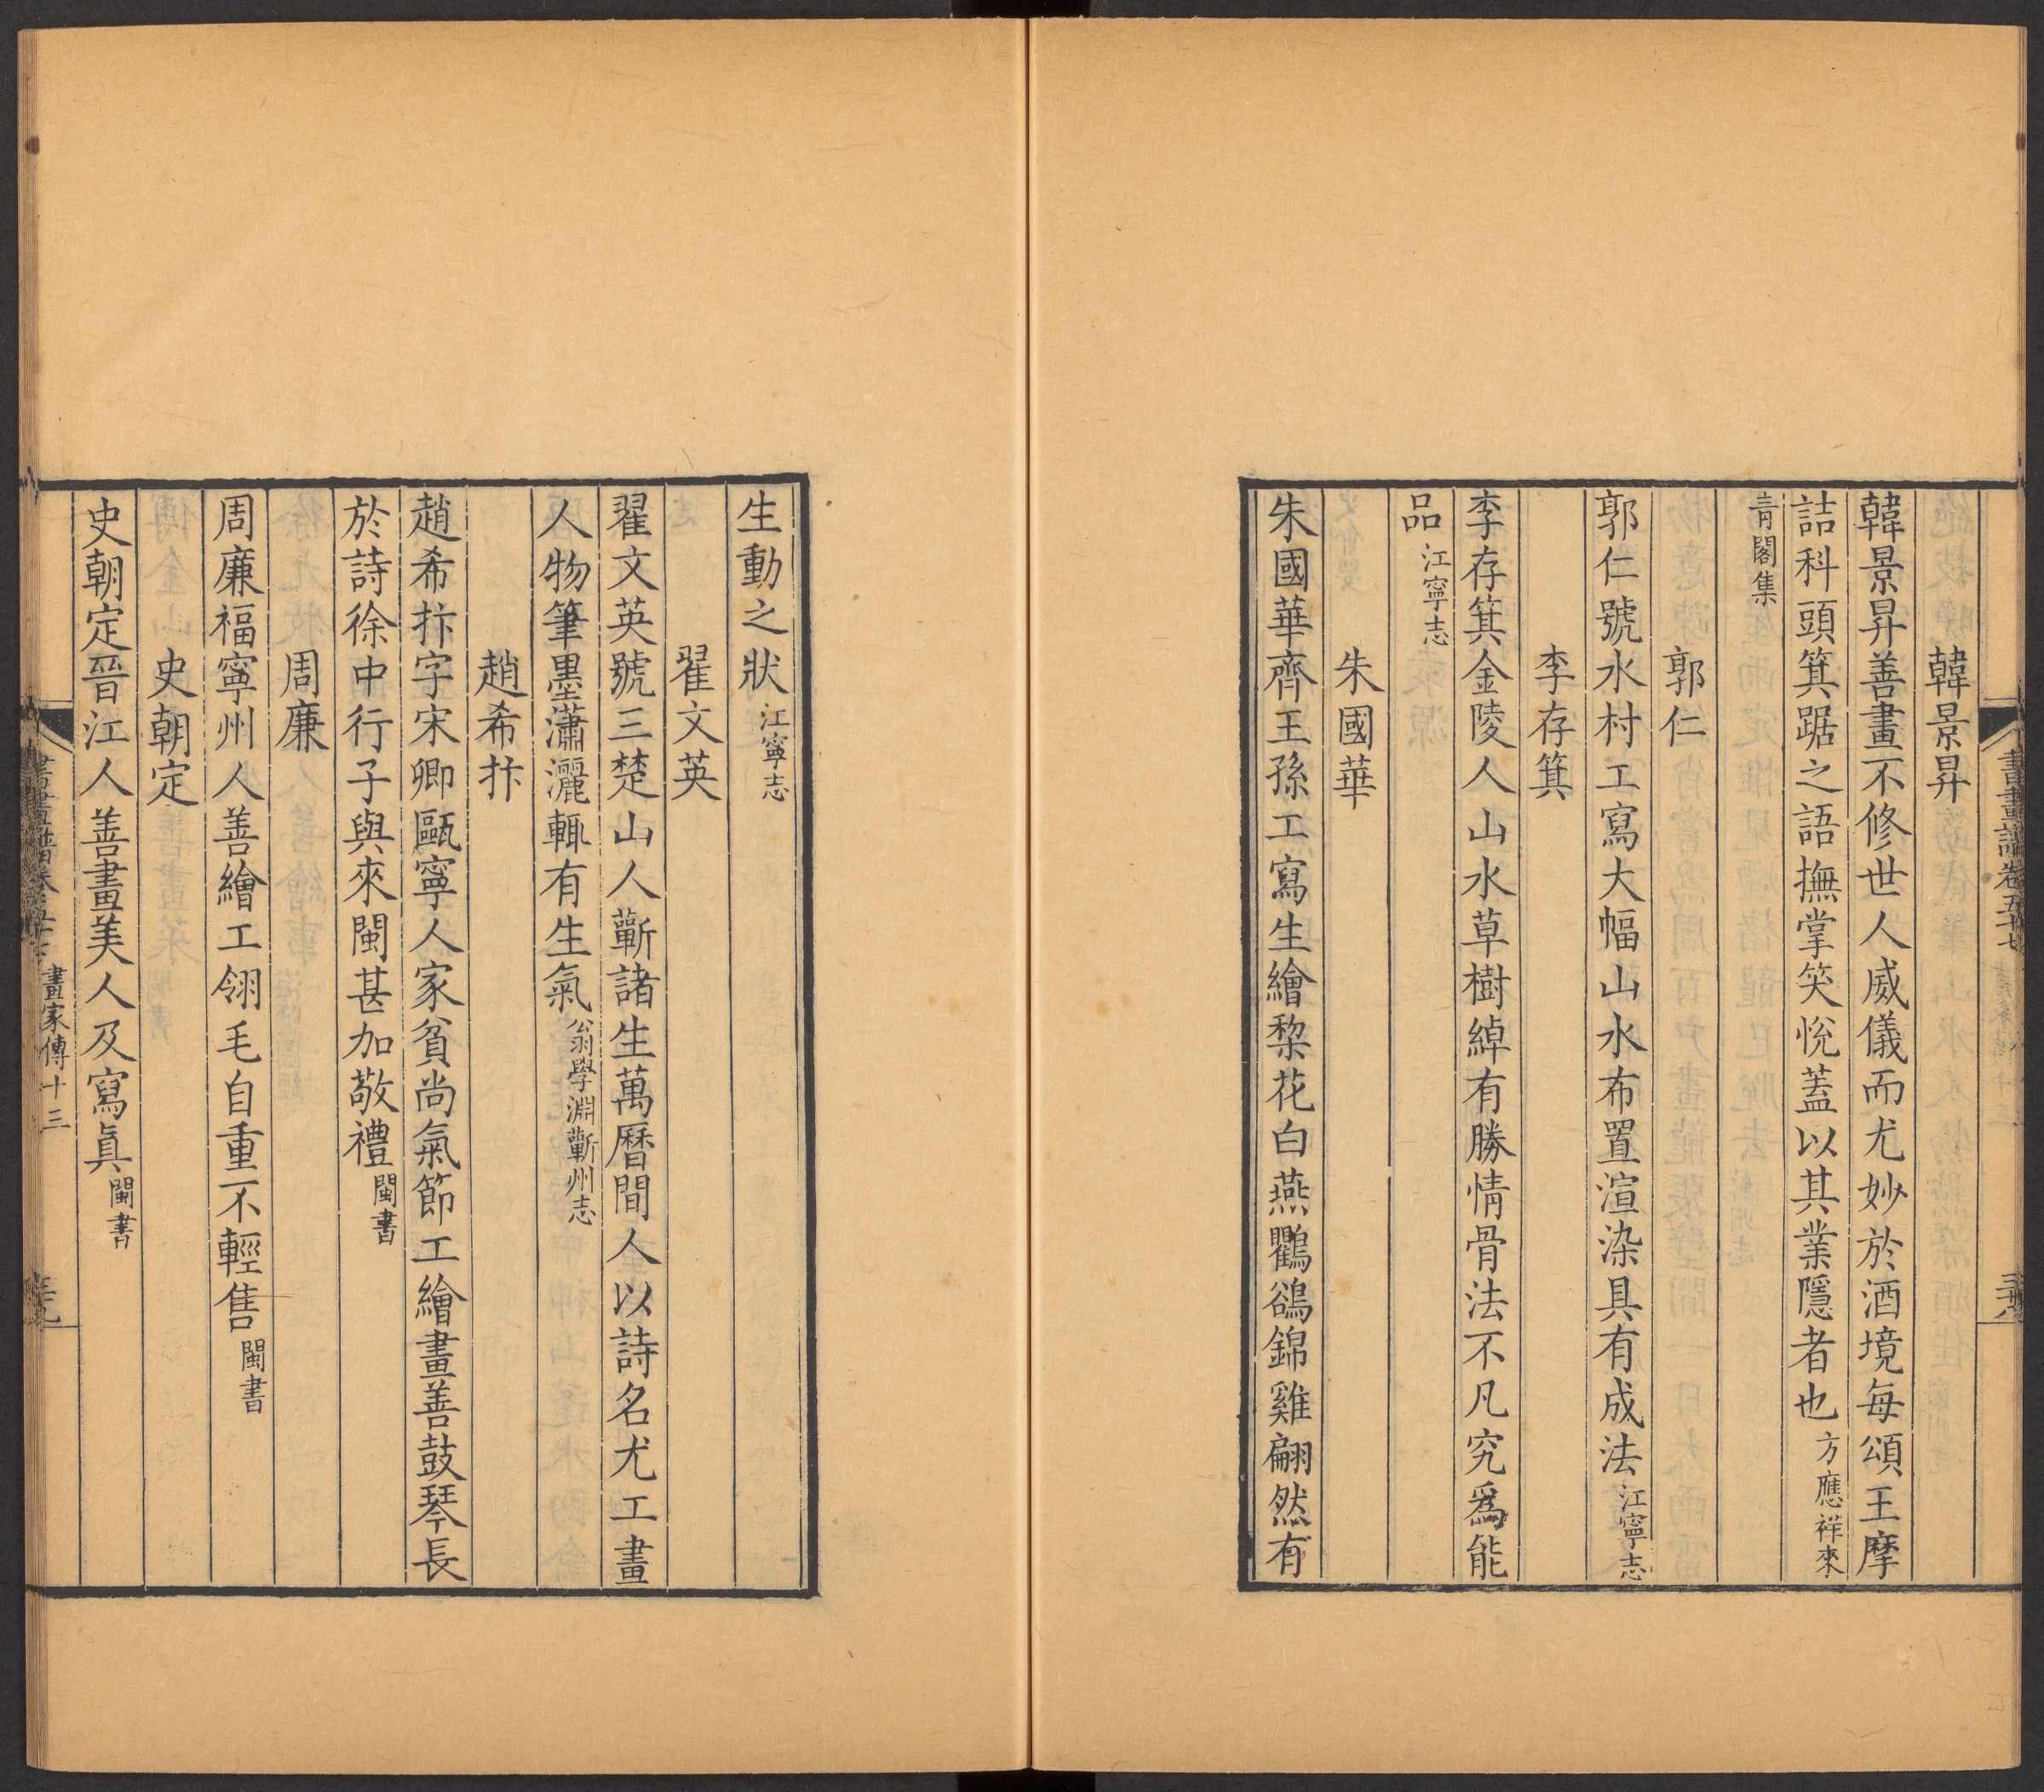 書畫譜卷五十七
三十八
韓景昇
韓景昇善畫不修世人威儀而尤妙於酒境每頌王摩
詰科頭箕踞之語撫掌笑悅蓋以其業隱者也方應祥來
青閣集
郭仁
郭仁號水村工寫大幅山水布置渲染具有成法江寧志
李存箕
李存箕金陵人山水草樹綽有勝情骨法不凡究爲能
品江寧志
朱國華
朱國華齊王孫工寫生繪棃花白燕鸜鵒錦雞翩然有
生動之狀江寧志
翟文英
翟文英號三楚山人蘄諸生萬曆間人以詩名尤工畫
人物筆墨瀟灑輒有生氣翁學淵蘄州志
趙希抃
趙希抃字宋卿甌寧人家貧尚氣節工繪畫善鼓琴長
於詩徐中行子與來閩甚加敬禮閩書
周廉
周廉福寧州人善繪工翎毛自重不輕售閩書
史朝定
史朝定晉江人善畫美人及寫眞閩書
畫家傳十三